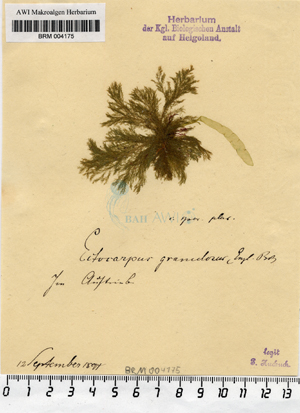 AWI Makroalgen Herbarium
BRM 004175
Herbarium
der Kgl. Biologischen Anstalt
auf Helgoland.
BAH AWI
Ectocarpus granulosus, Engl. Bot.
Im Auftrieb
12 September 1894
BRM 004175
legit
P. Kuckuck
0 1 2 3 4 5 6 7 8 9 10 11 12 13